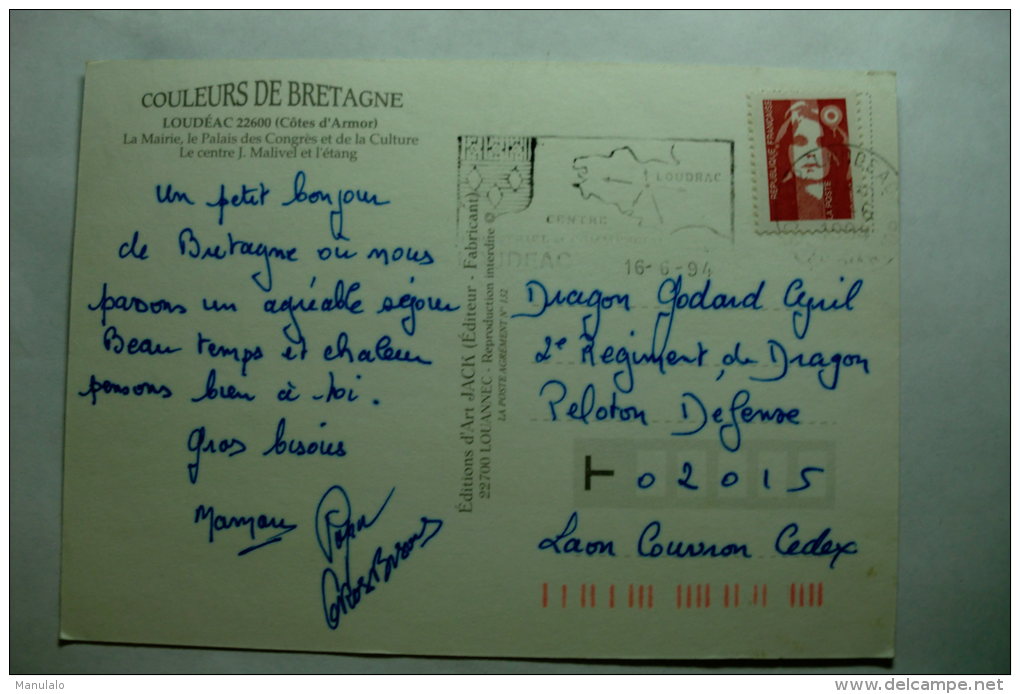 COULEURS DE BRETAGNE
LOUDÉAC 22600 (Côtes d'Armor)
La Mairie, le Palais des Congrès et de la Culture
Le centre J. Malivel et l'étang
Un petit bonjour
de Bretagne où nous
passons un agréable séjour
Beau temps et chaleur
pensons bien à toi.
Gros bisous
Maman Papa
Gros Bisous
Éditions d'Art JACK (Éditeur - Fabricant)
22700 LOUANNEC - Reproduction interdite ©
LA POSTE AGRÉMENT N° 132
LOUDEAC
CENTRE
16-6-94
REPUBLIQUE FRANÇAISE
LA POSTE
Dragon Godard Cyril
2e Régiment de Dragon
Peloton Defense
T 02015
Laon Couvron Cedex
Manulalo
delcampe.net